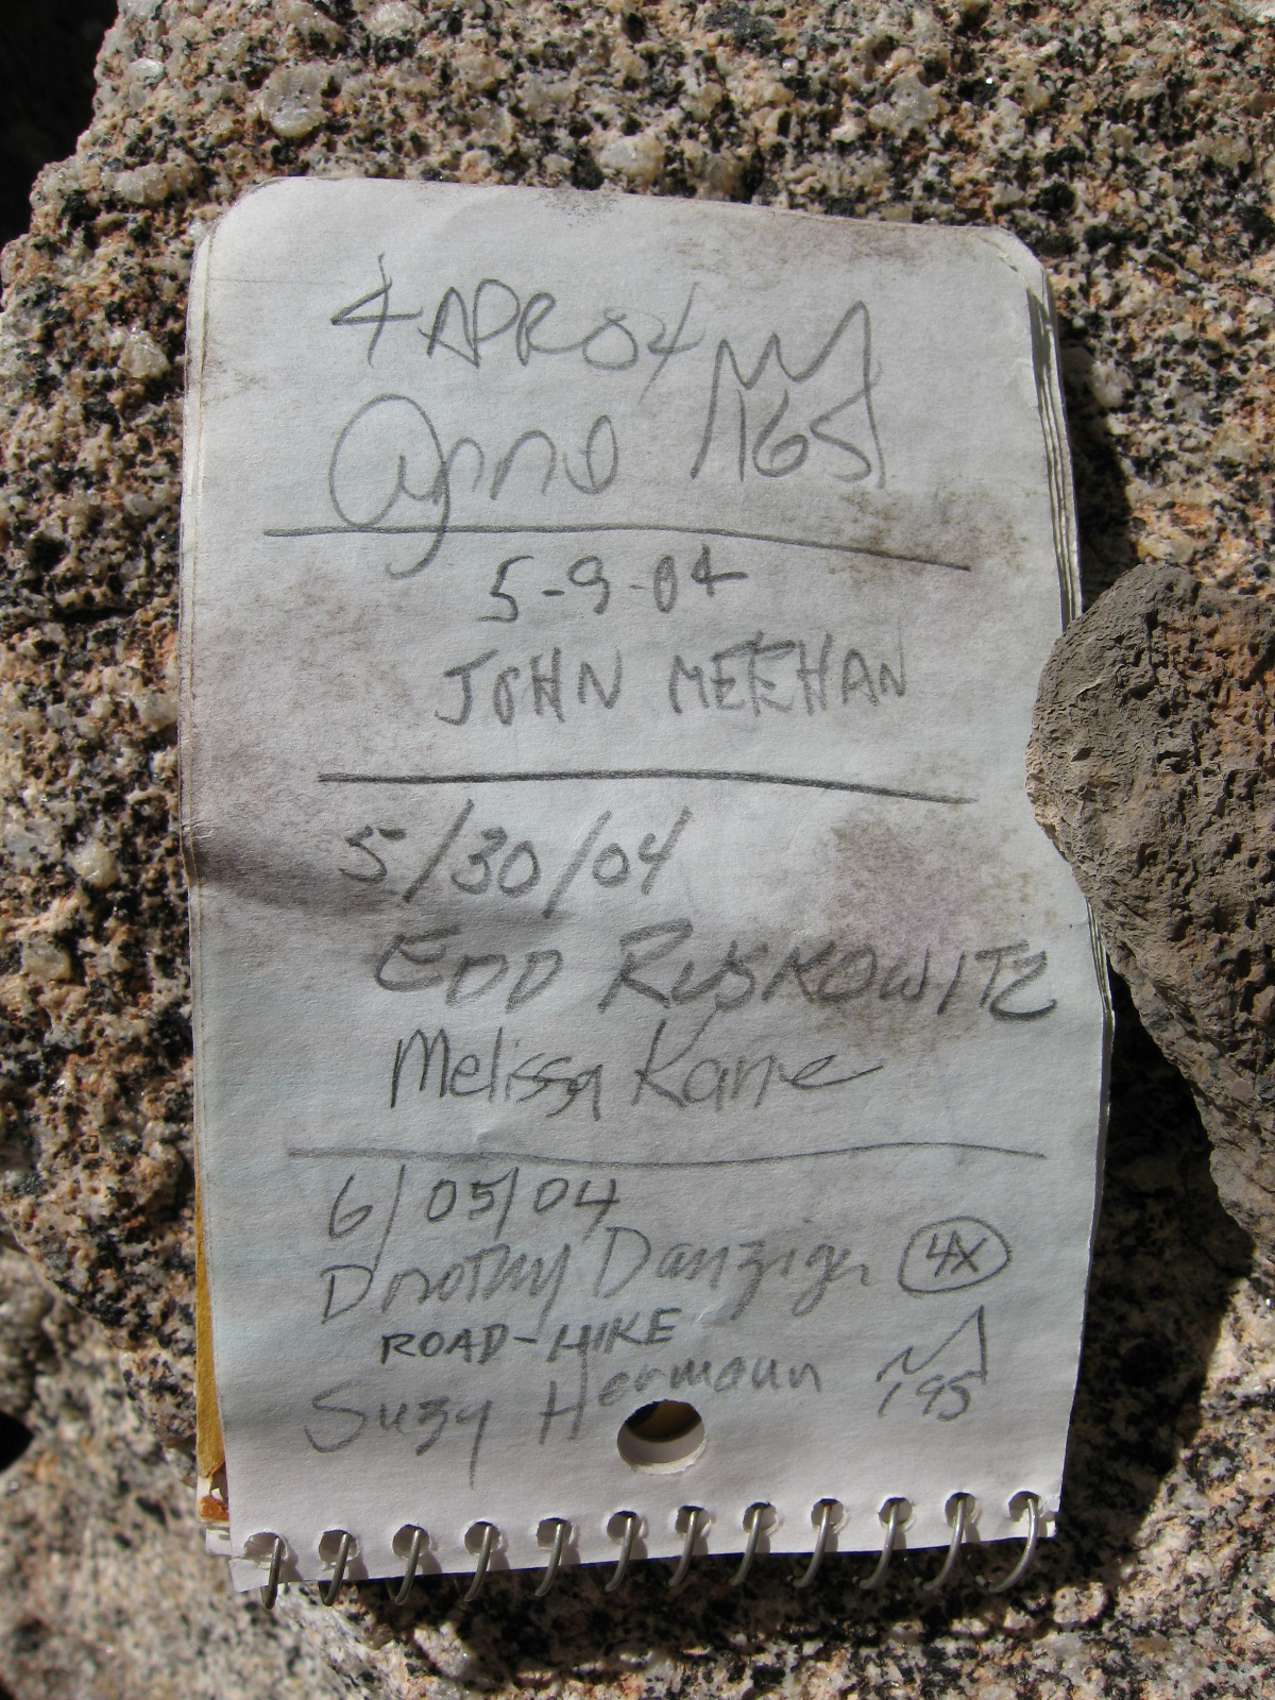 4 APR 04
165
5-9-04
JOHN MEEHAN
5/30/04
EDD RUSKOWITZ
Melissa Kane
6/05/04
Dorothy Danziger 4X
ROAD-HIKE
Suzy Hermann 195